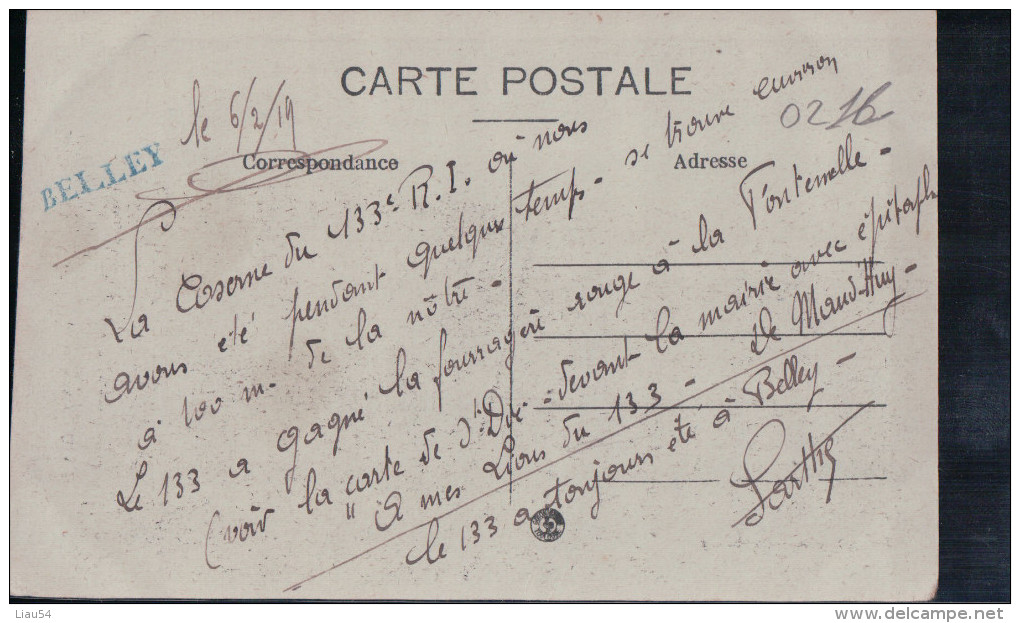 CARTE POSTALE
Correspondance
Adresse
BELLEY
le 6/2/19
0216
La Caserne du 133e R.I. où nous
avons été pendant quelques temps - se trouve environ
à 100 m. de la nôtre -
Le 133 a gagné la fourragère rouge à la Fontenelle -
(voir la carte de St Dié - devant la mairie avec épitaphe
" A mes Lions du 133 - de Maud'Huy -
le 133 a toujours été à Belley -
Liau54
delcampe.net